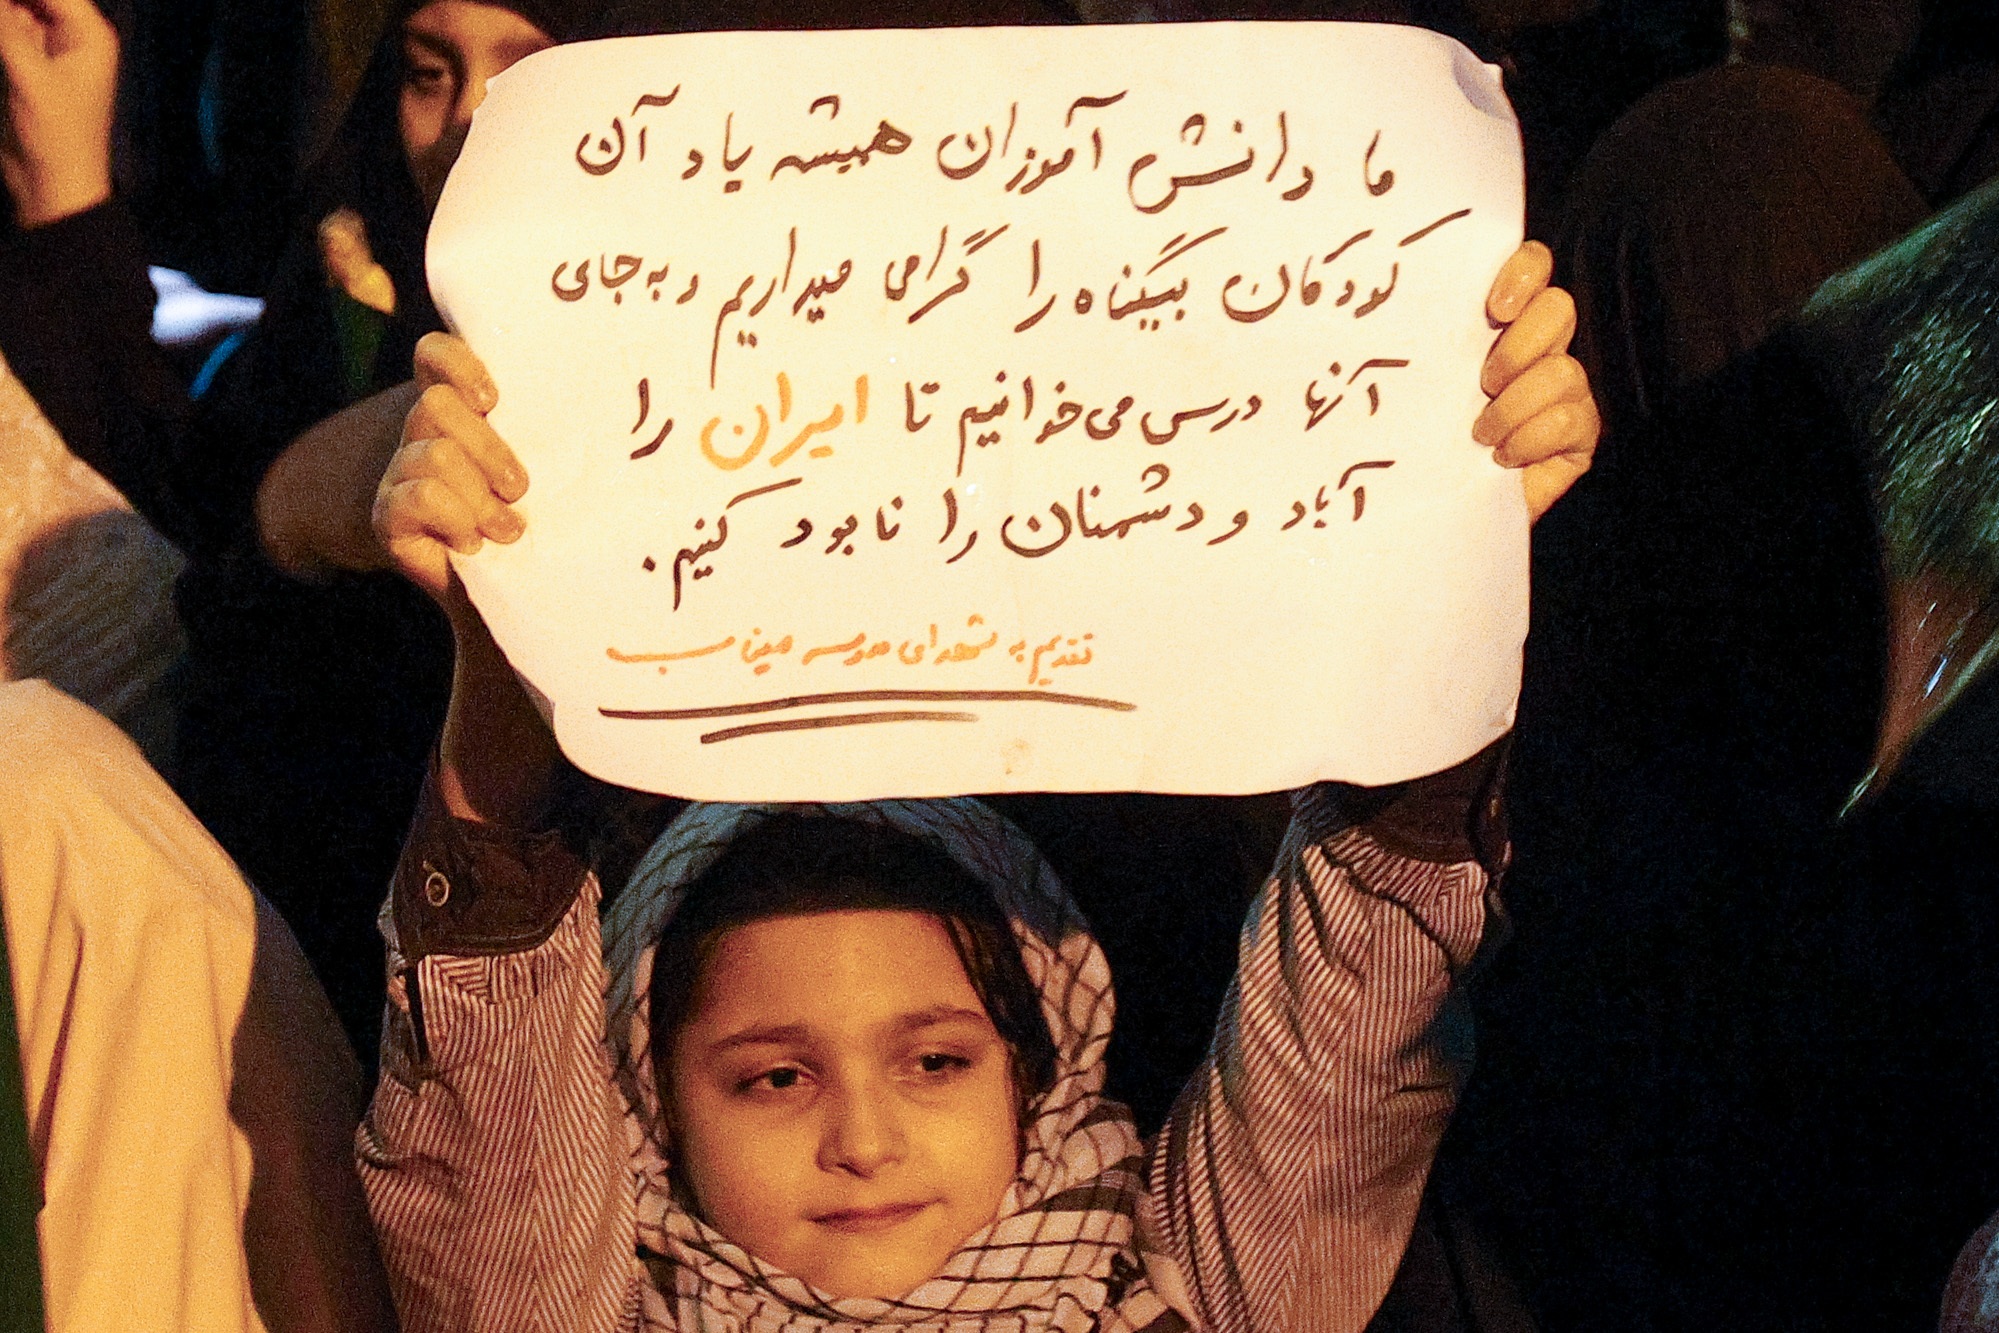 ما دانش آموزان همیشه یاد آن
کودکان بیگناه را گرامی میداریم و به جای
آنها درس می‌خوانیم تا ایران را
آباد و دشمنان را نابود کنیم.
تقدیم به شهدای مدرسه میناب